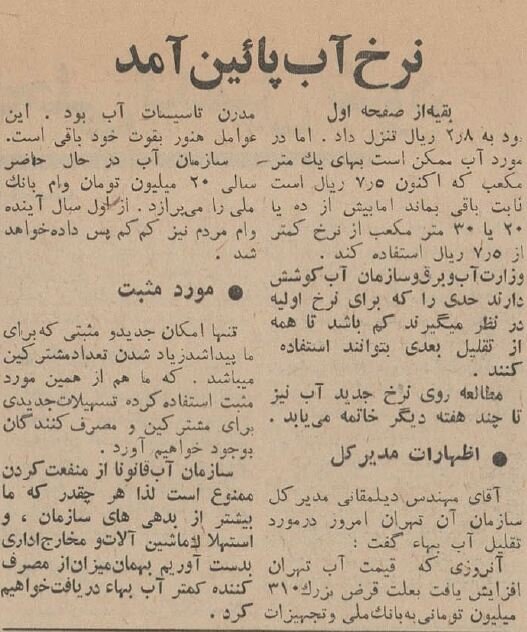 نرخ آب پائین آمد
بقیه از صفحه اول
بود به ۲٫۸ ریال تنزل داد . اما در
مورد آب ممکن است بهای یك متر
مکعب که اکنون ۷٫۵ ریال است
ثابت باقی بماند امابیش از ده یا
۲۰ یا ۳۰ متر مکعب از نرخ کمتر
از ۷٫۵ ریال استفاده کند .
وزارت آب و برق و سازمان آب کوشش
دارند حدی را که برای نرخ اولیه
در نظر میگیرند کم باشد تا همه
از تقلیل بعدی بتوانند استفاده
کنند .
مطالعه روی نرخ جدید آب نیز
تا چند هفته دیگر خاتمه می‌یابد .
● اظهارات مدیر کل
آقای مهندس دیلمقانی مدیر کل
سازمان آن تهران امروز درمورد
تقلیل آب بهاء گفت :
آنروزی که قیمت آب تهران
افزایش یافت بعلت قرض بزرك ۳۱۰
میلیون تومانی به بانك ملی و تجهیزات
مدرن تاسیسات آب بود . این
عوامل هنور بقوت خود باقی است.
سازمان آب در حال حاضر
سالی ۲۰ میلیون تومان وام بانك
ملی را می‌پرازد . از اول سال آینده
وام مردم نیز کم کم پس داده خواهد
شد .
● مورد مثبت
تنها امکان جدیدو مثبتی که برای
ما پیداشدزیاد شدن تعدادمشترکین
میباشد . که ما هم از همین مورد
مثبت استفاده کرده تسهیلات جدیدی
برای مشترکین و مصرف کنندگان
بوجود خواهیم آورد .
سازمان آب قانونا از منفعت کردن
ممنوع است لذا هر چقدر که ما
بیشتر از بدهی های سازمان ، و
استهلاك ماشین آلات و مخارج اداری
بدست آوریم بهمان میزان از مصرف
کننده کمتر آب بهاء دریافت خواهیم
کرد .